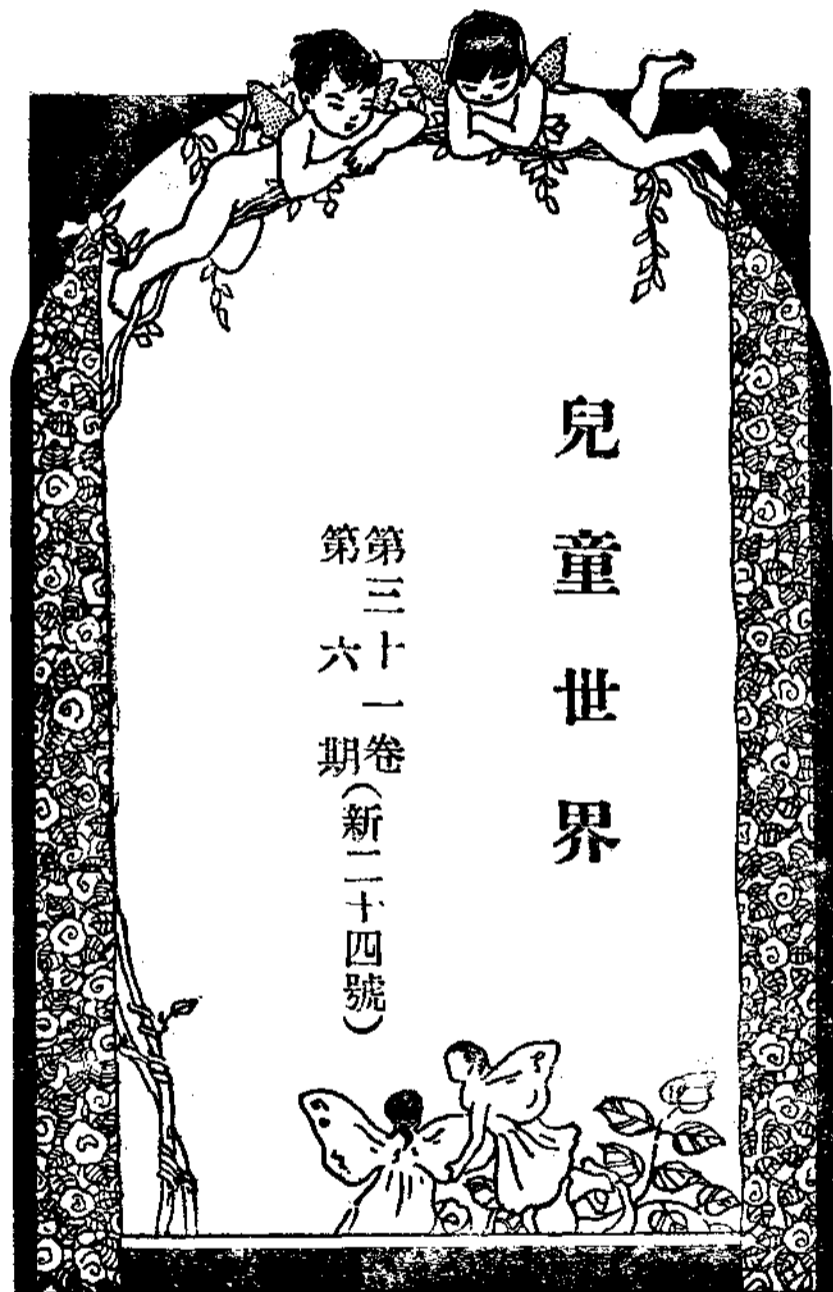 兒童世界
第三十一卷
第六期
(新二十四號)